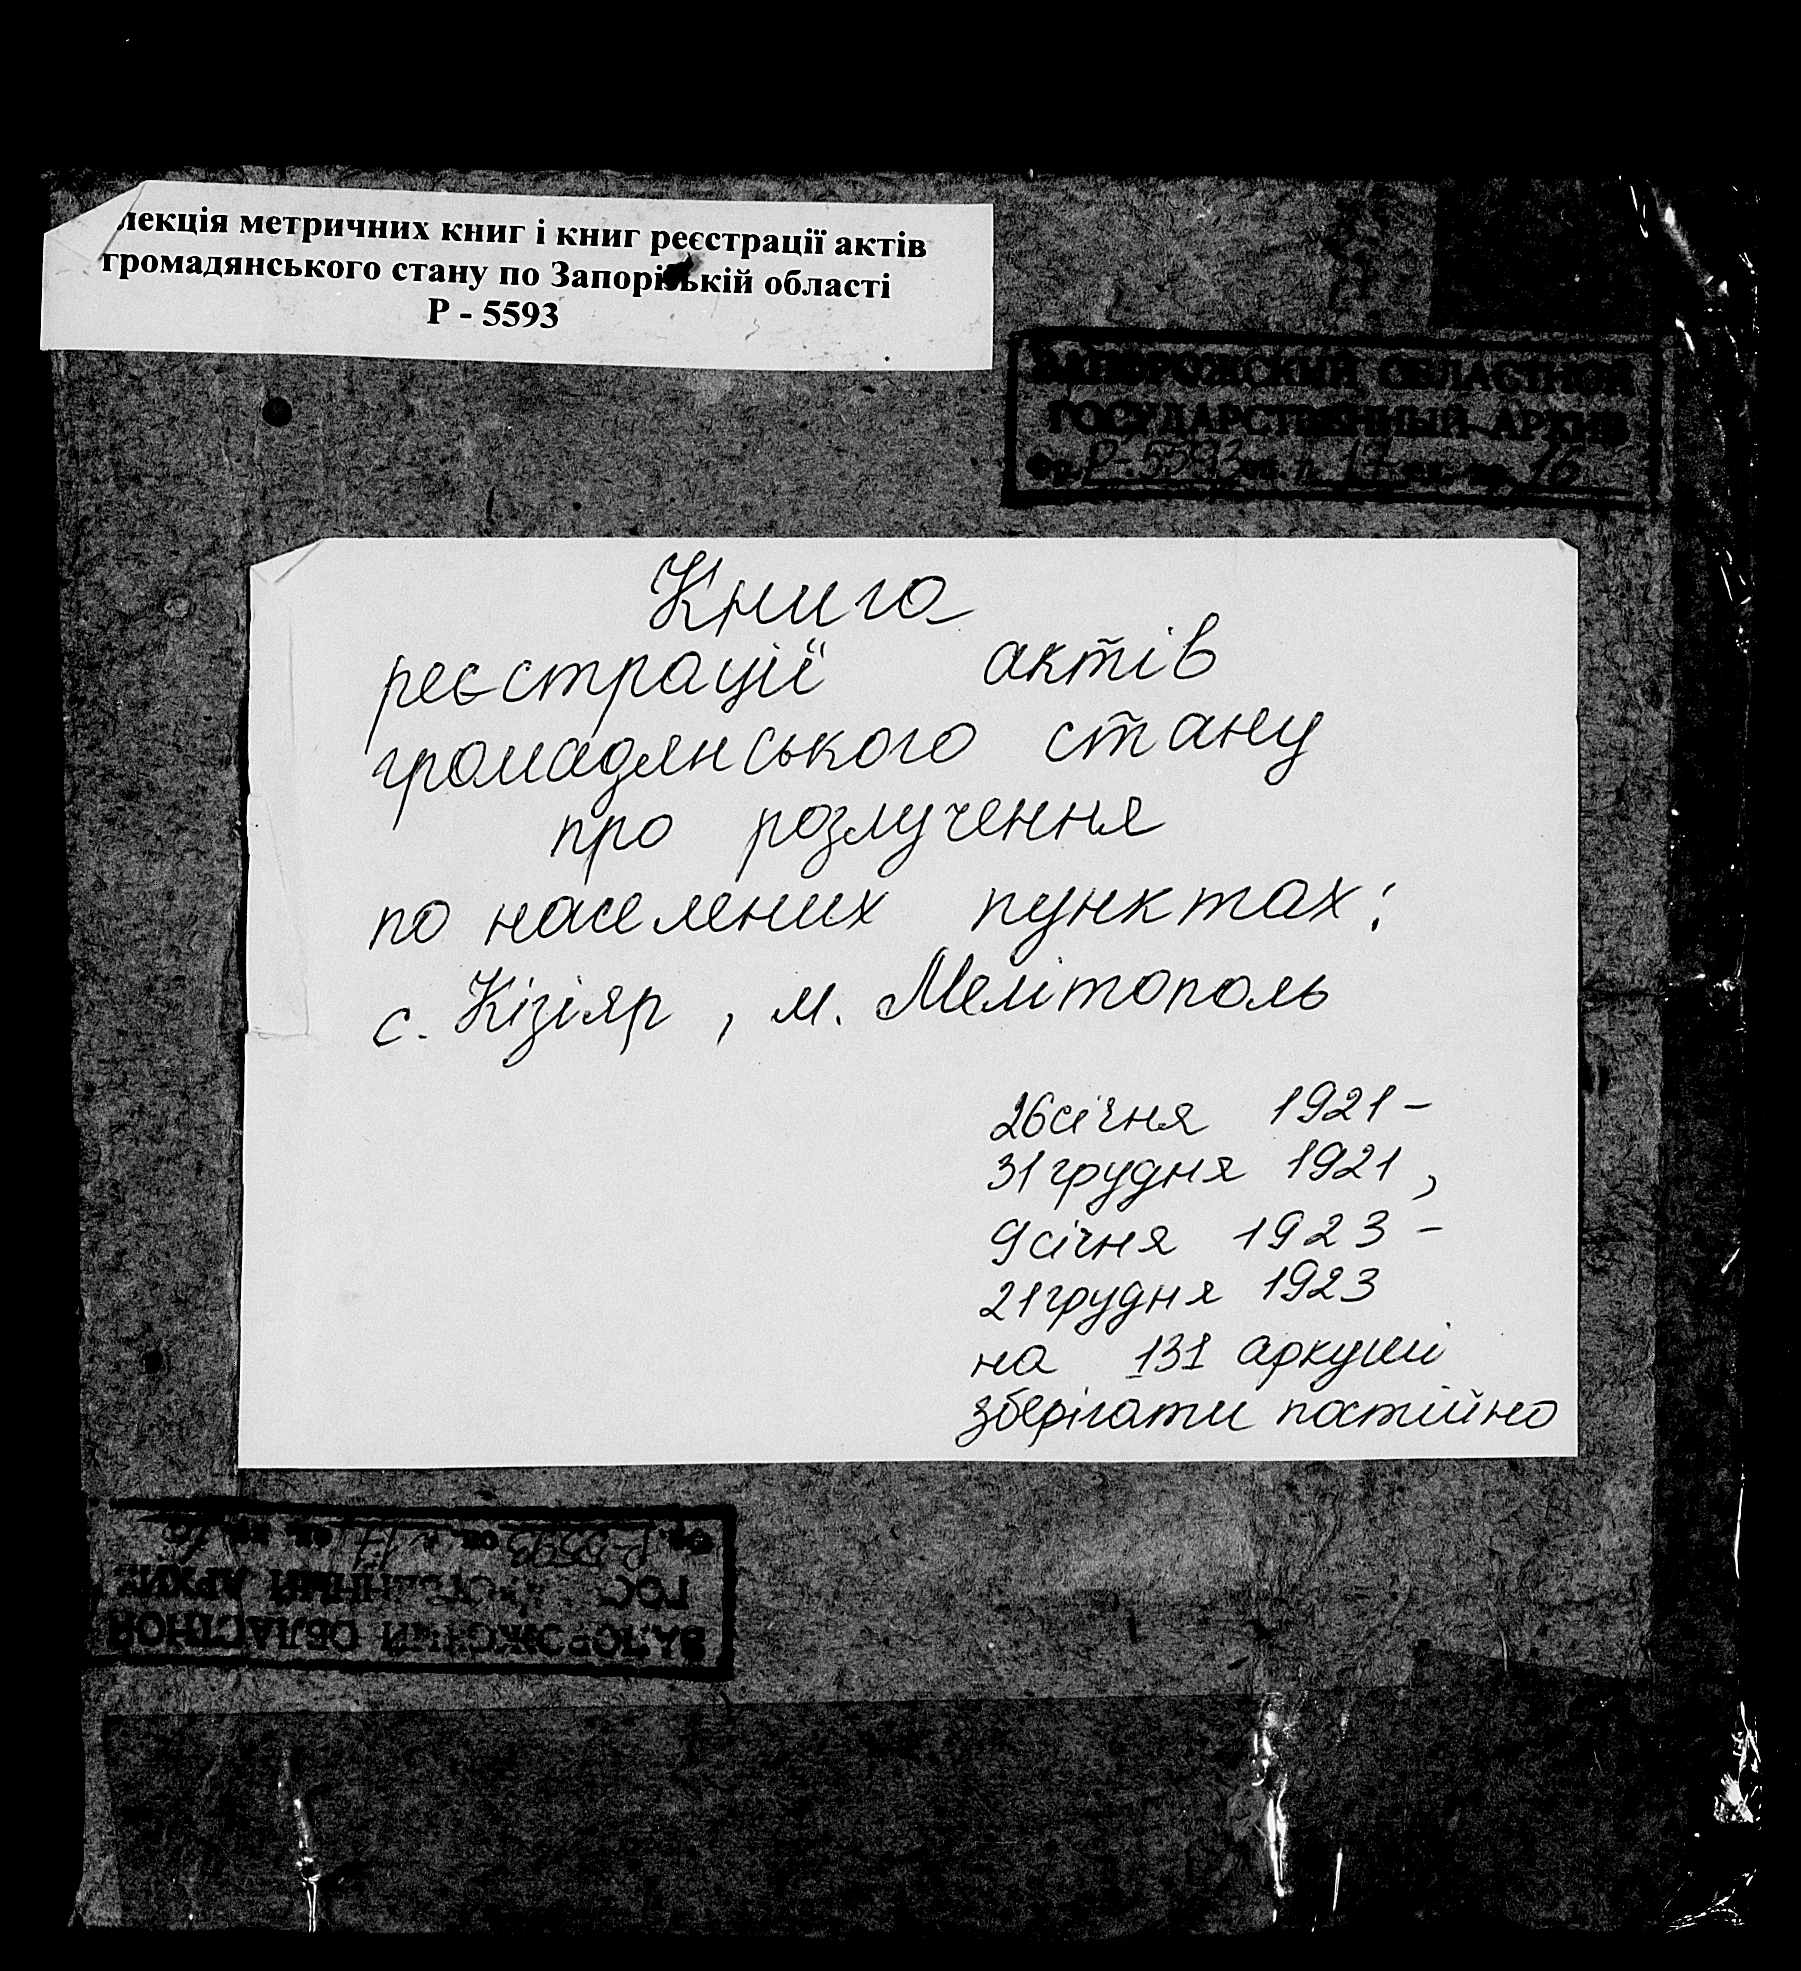 лекція метричних книг і книг реєстрації актів
громадянського стану по Запорізькій області
Р - 5593
ЗАПОРОЖСКИЙ ОБЛАСТНОЙ
ГОСУДАРСТВЕННЫЙ АРХИВ
Фр. Р-5593 оп. 17 ед. хр. 16
Книга
реєстрації актів
громадянського стану
про розлучення
по населених пунктах:
с. Кізіяр, м. Мелітополь
26 січня 1921 -
31 грудня 1921,
9 січня 1923 -
21 грудня 1923
на 131 аркуші
зберігати постійно
ЗАПОРОЖСКИЙ ОБЛАСТНОЙ
АРХИВ
Р-5593 17